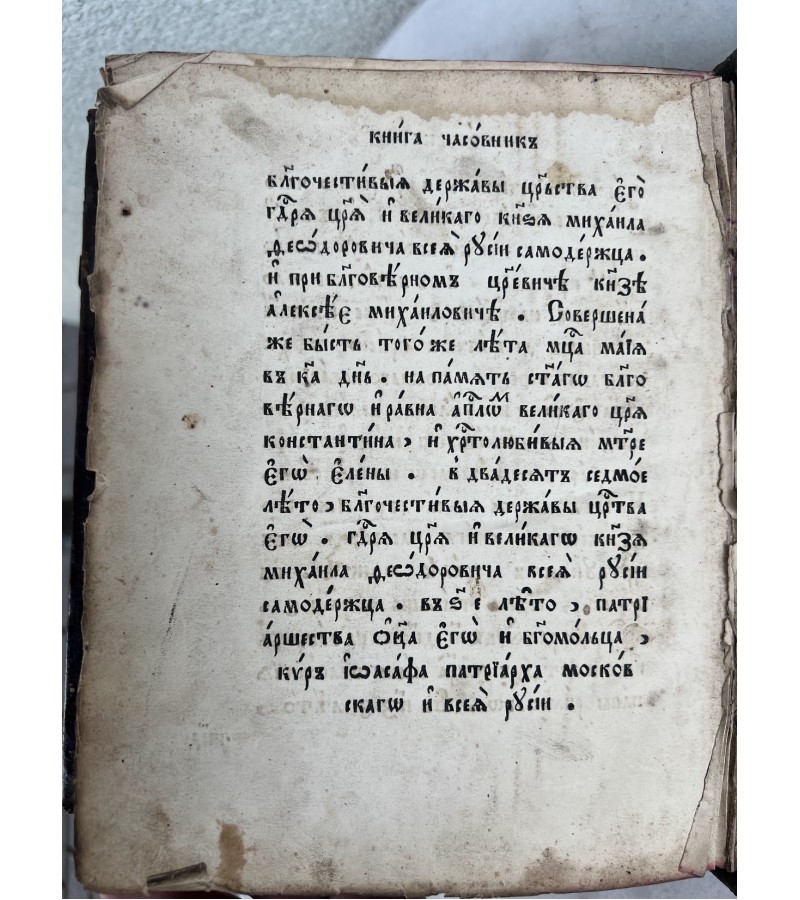 кни́га часо́вникъ
бл҃гочести́выѧ держа́вы црⷭ҇тва є҆гѡ̀
гдⷭ҇рѧ цр҃ѧ̀ и҆ вели́каго кн҃ѕѧ миха́ила
ѳео́доровича всеѧ̀ рꙋсі́и самоде́ржца .
и҆ при бл҃гове́рномъ цр҃е́виче кн҃зе
а҆леѯѣ́є миха́иловиче . Соверше́на
же бы́сть того́же лѣ́та мцⷭ҇а ма́їѧ
въ к҃а дн҃ь . на па́мѧть ст҃а́гѡ бл҃го
вѣ́рнагѡ и҆ ра́вна а҆пⷭ҇лѡⷨ вели́каго цр҃ѧ̀
константи́на , и҆ хрⷭ҇толюби́выѧ мт҃ре
є҆гѡ̀ є҆ле́ны . в два́десѧтъ седмо́е
лѣ́то , бл҃гочести́выѧ держа́вы црⷭ҇тва
є҆гѡ̀ . гдⷭ҇рѧ цр҃ѧ̀ и҆ вели́кагѡ кн҃зѧ
миха́ила ѳео́доровича всеѧ̀ рꙋсі́и
самоде́ржца . въ ѕ҃ е лѣ́то , патрї
а́ршества ѻ҆ц҃а̀ є҆гѡ̀ и҆ бг҃омо́льца ,
ки́ръ і҆ѡаса́фа патрїа́рха моско́в
скагѡ и҆ всеѧ̀ рꙋсі́и .